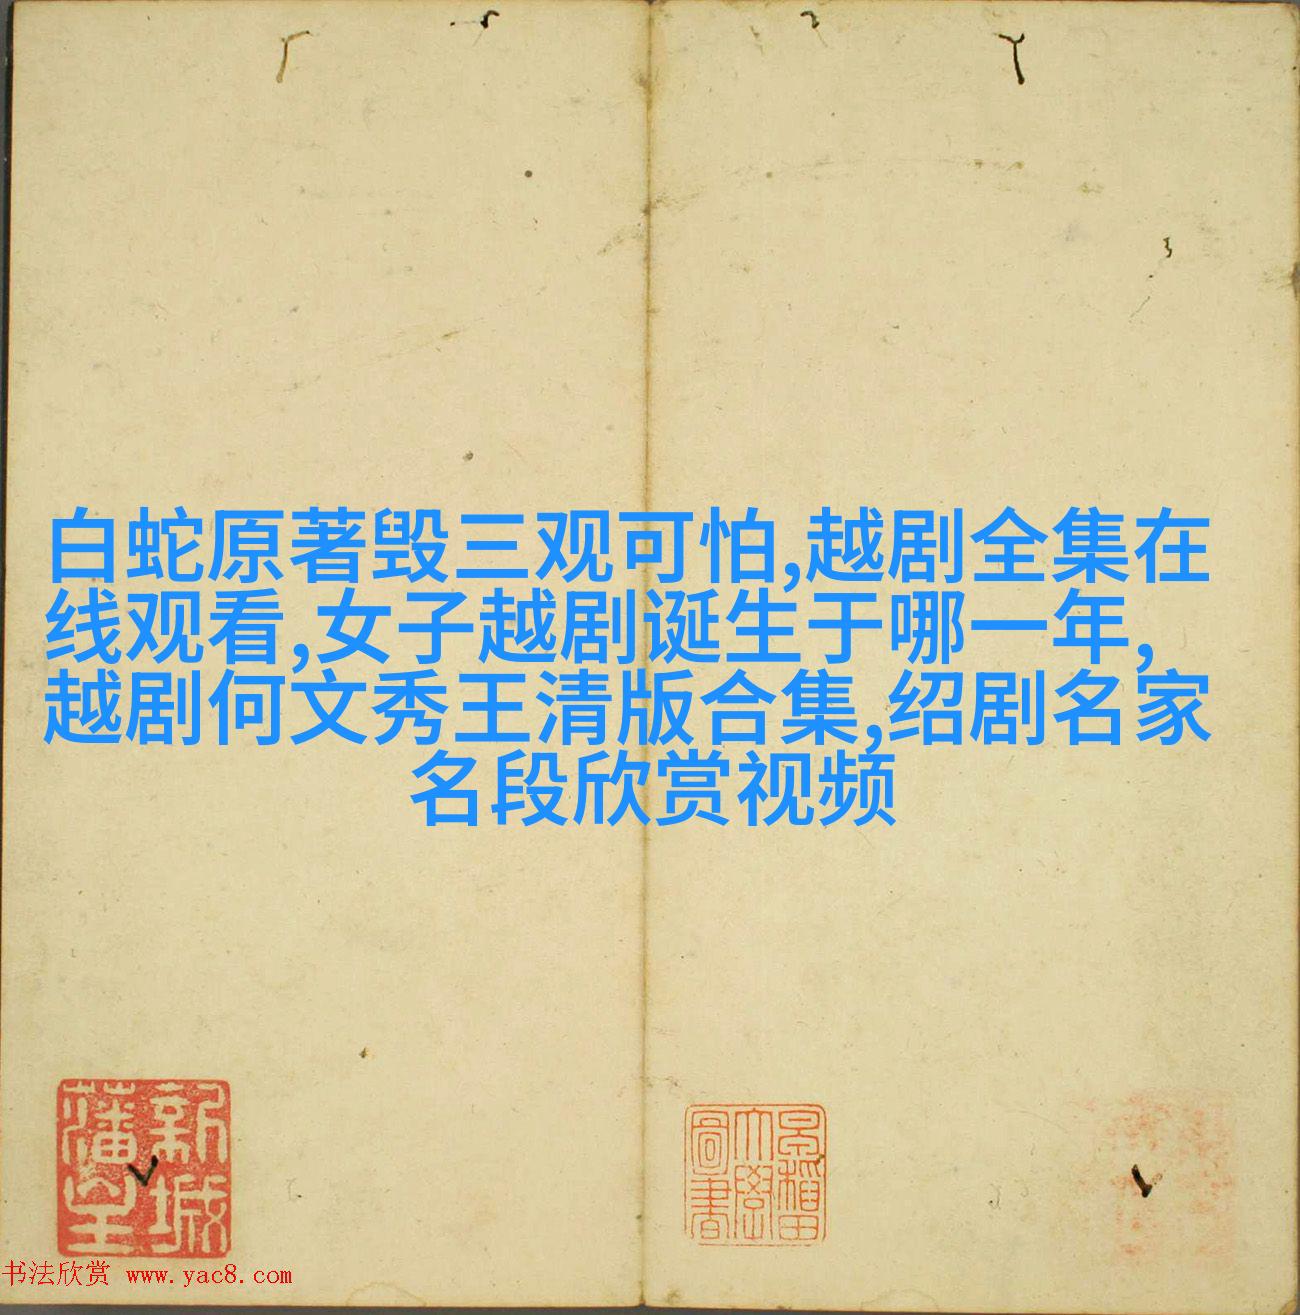 白蛇原著毁三观可怕,越剧全集在
线观看,女子越剧诞生于哪一年,
越剧何文秀王清版合集,绍剧名家
名段欣赏视频
新城
藩室
早稲田
大學
圖書
书法欣赏 www.yac8.com